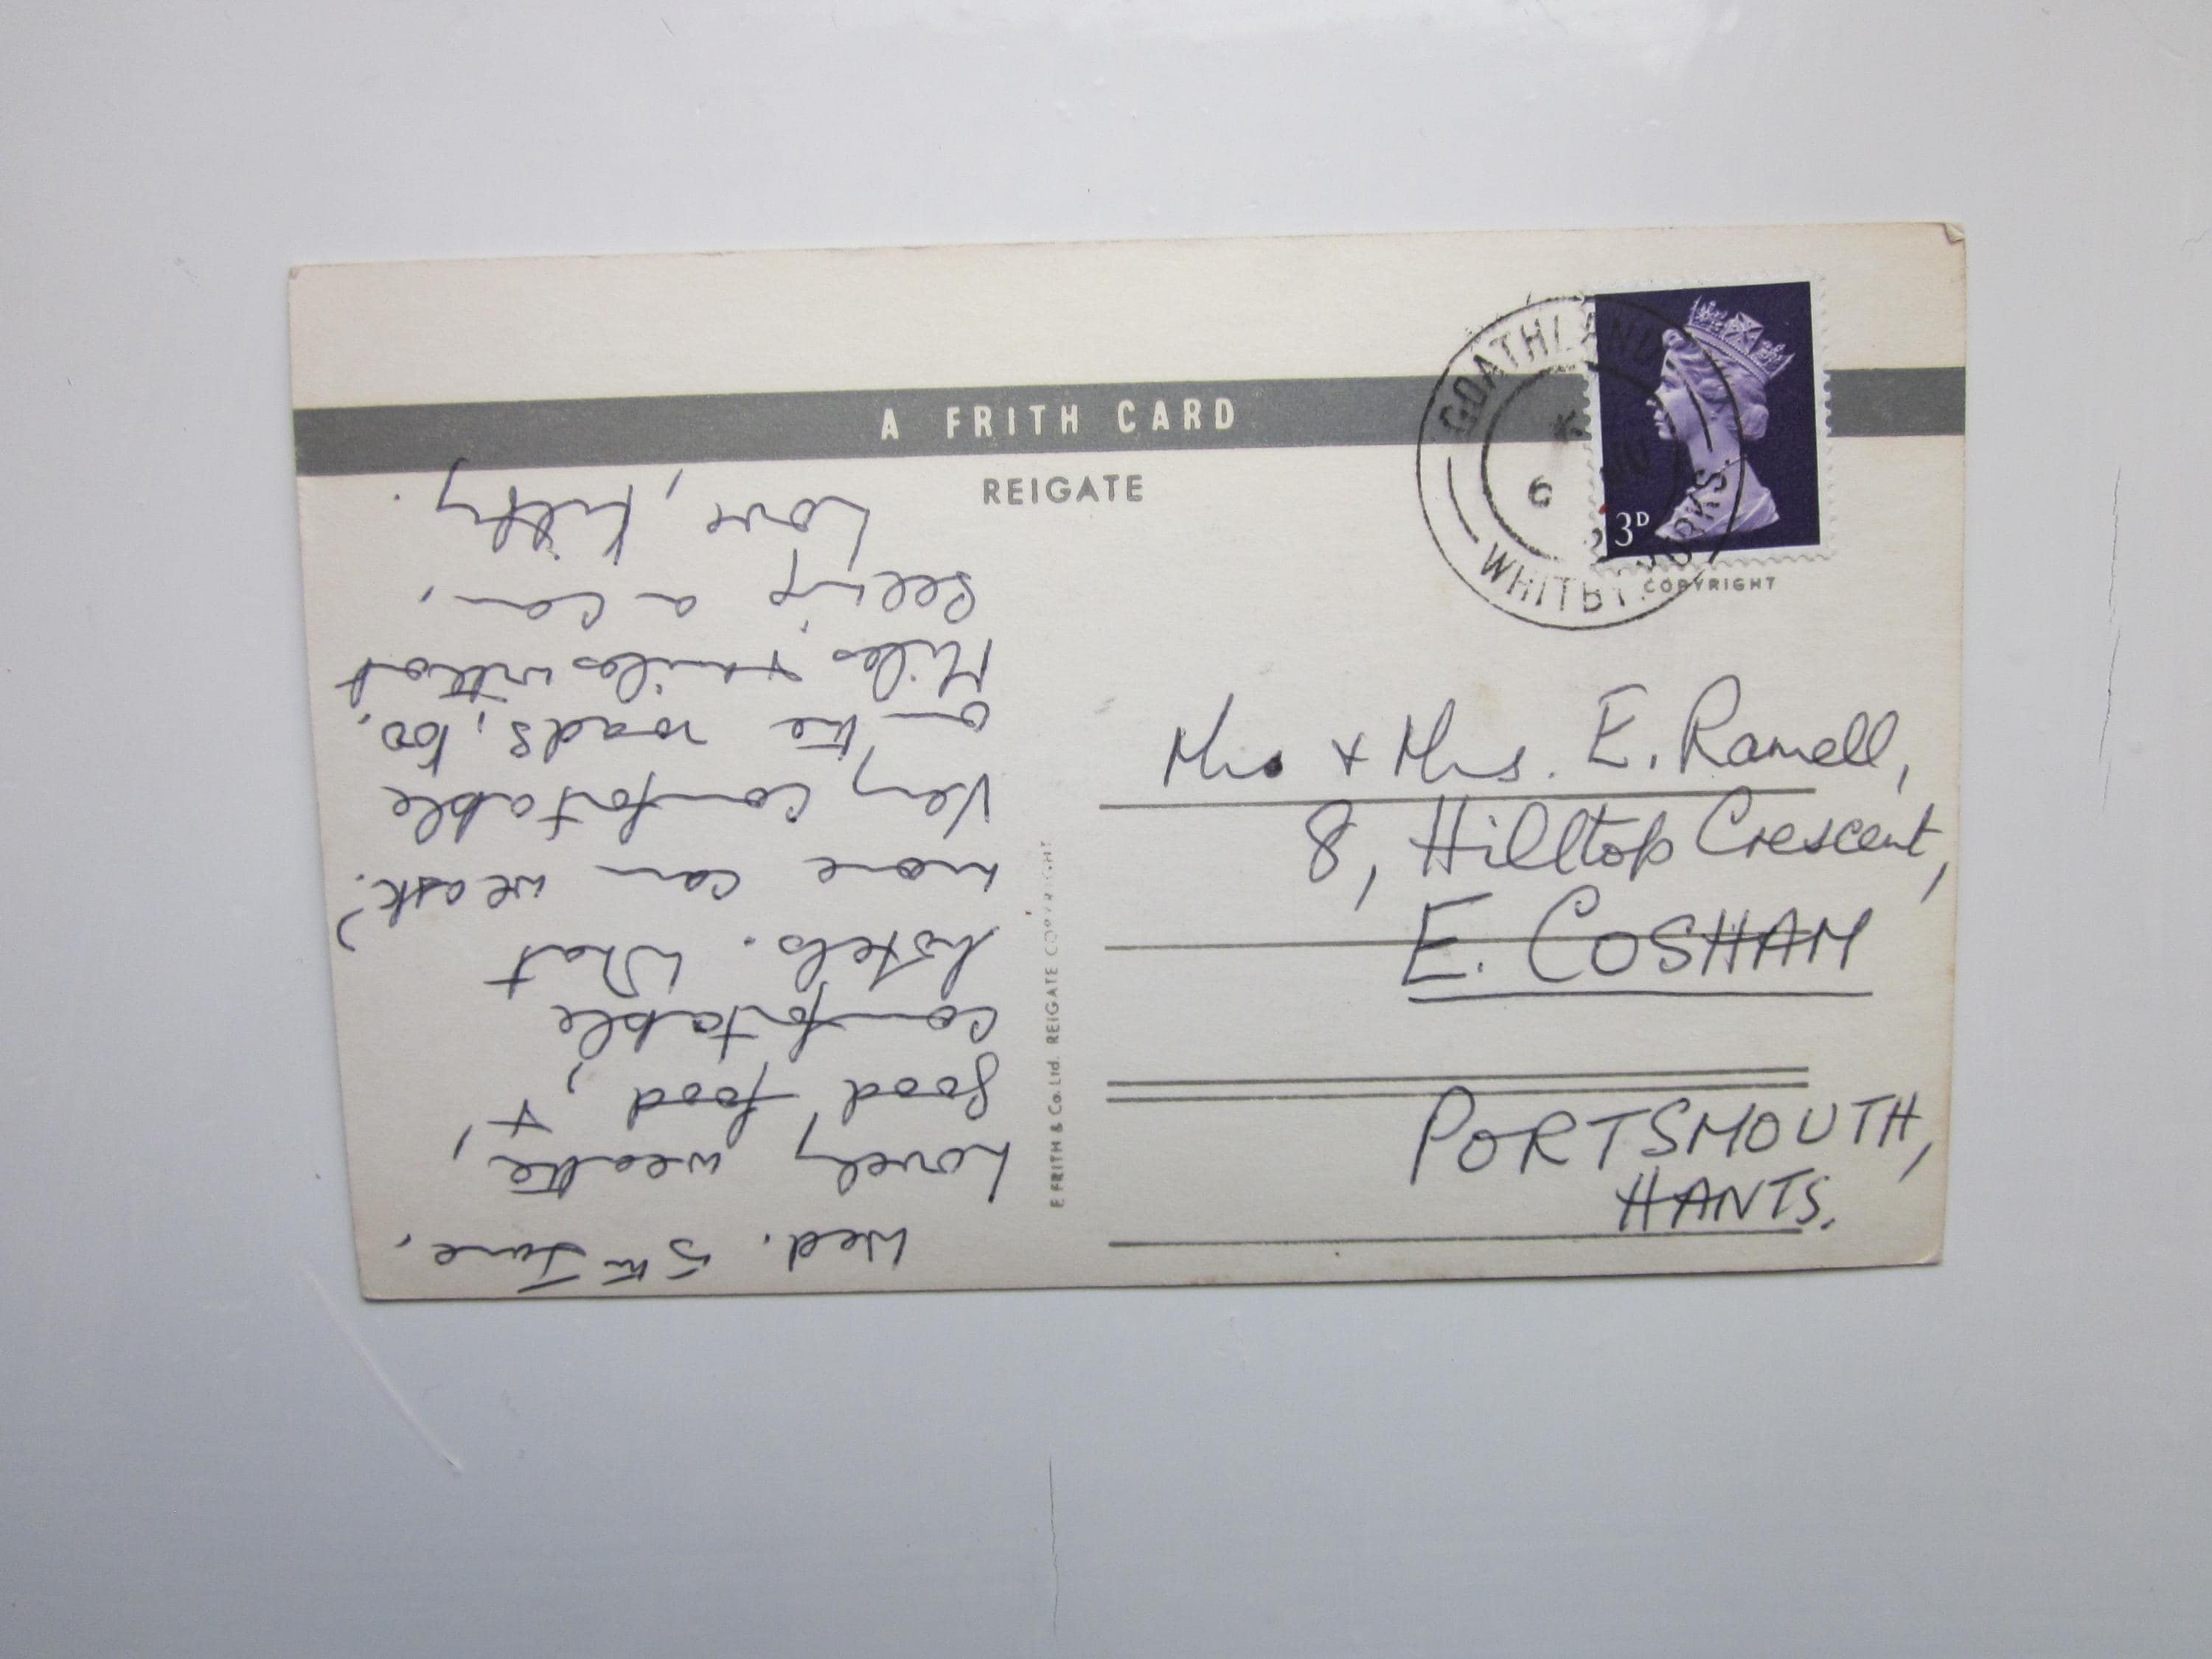 A FRITH CARD
REIGATE
GOATHLAND
6 JU
WHITBY. YORKS.
3D
COPYRIGHT
Wed. 5th June.
Lovely weather,
good food, +
comfortable
hotels. What
more can we ask?
Very comfortable
on the roads, too.
Miles + miles without
seeing a car.
Love, Kitty.
F FRITH & Co. Ltd. REIGATE COPYRIGHT
Mr. + Mrs. E. Ramell,
8, Hilltop Crescent,
E. COSHAM
PORTSMOUTH,
HANTS.